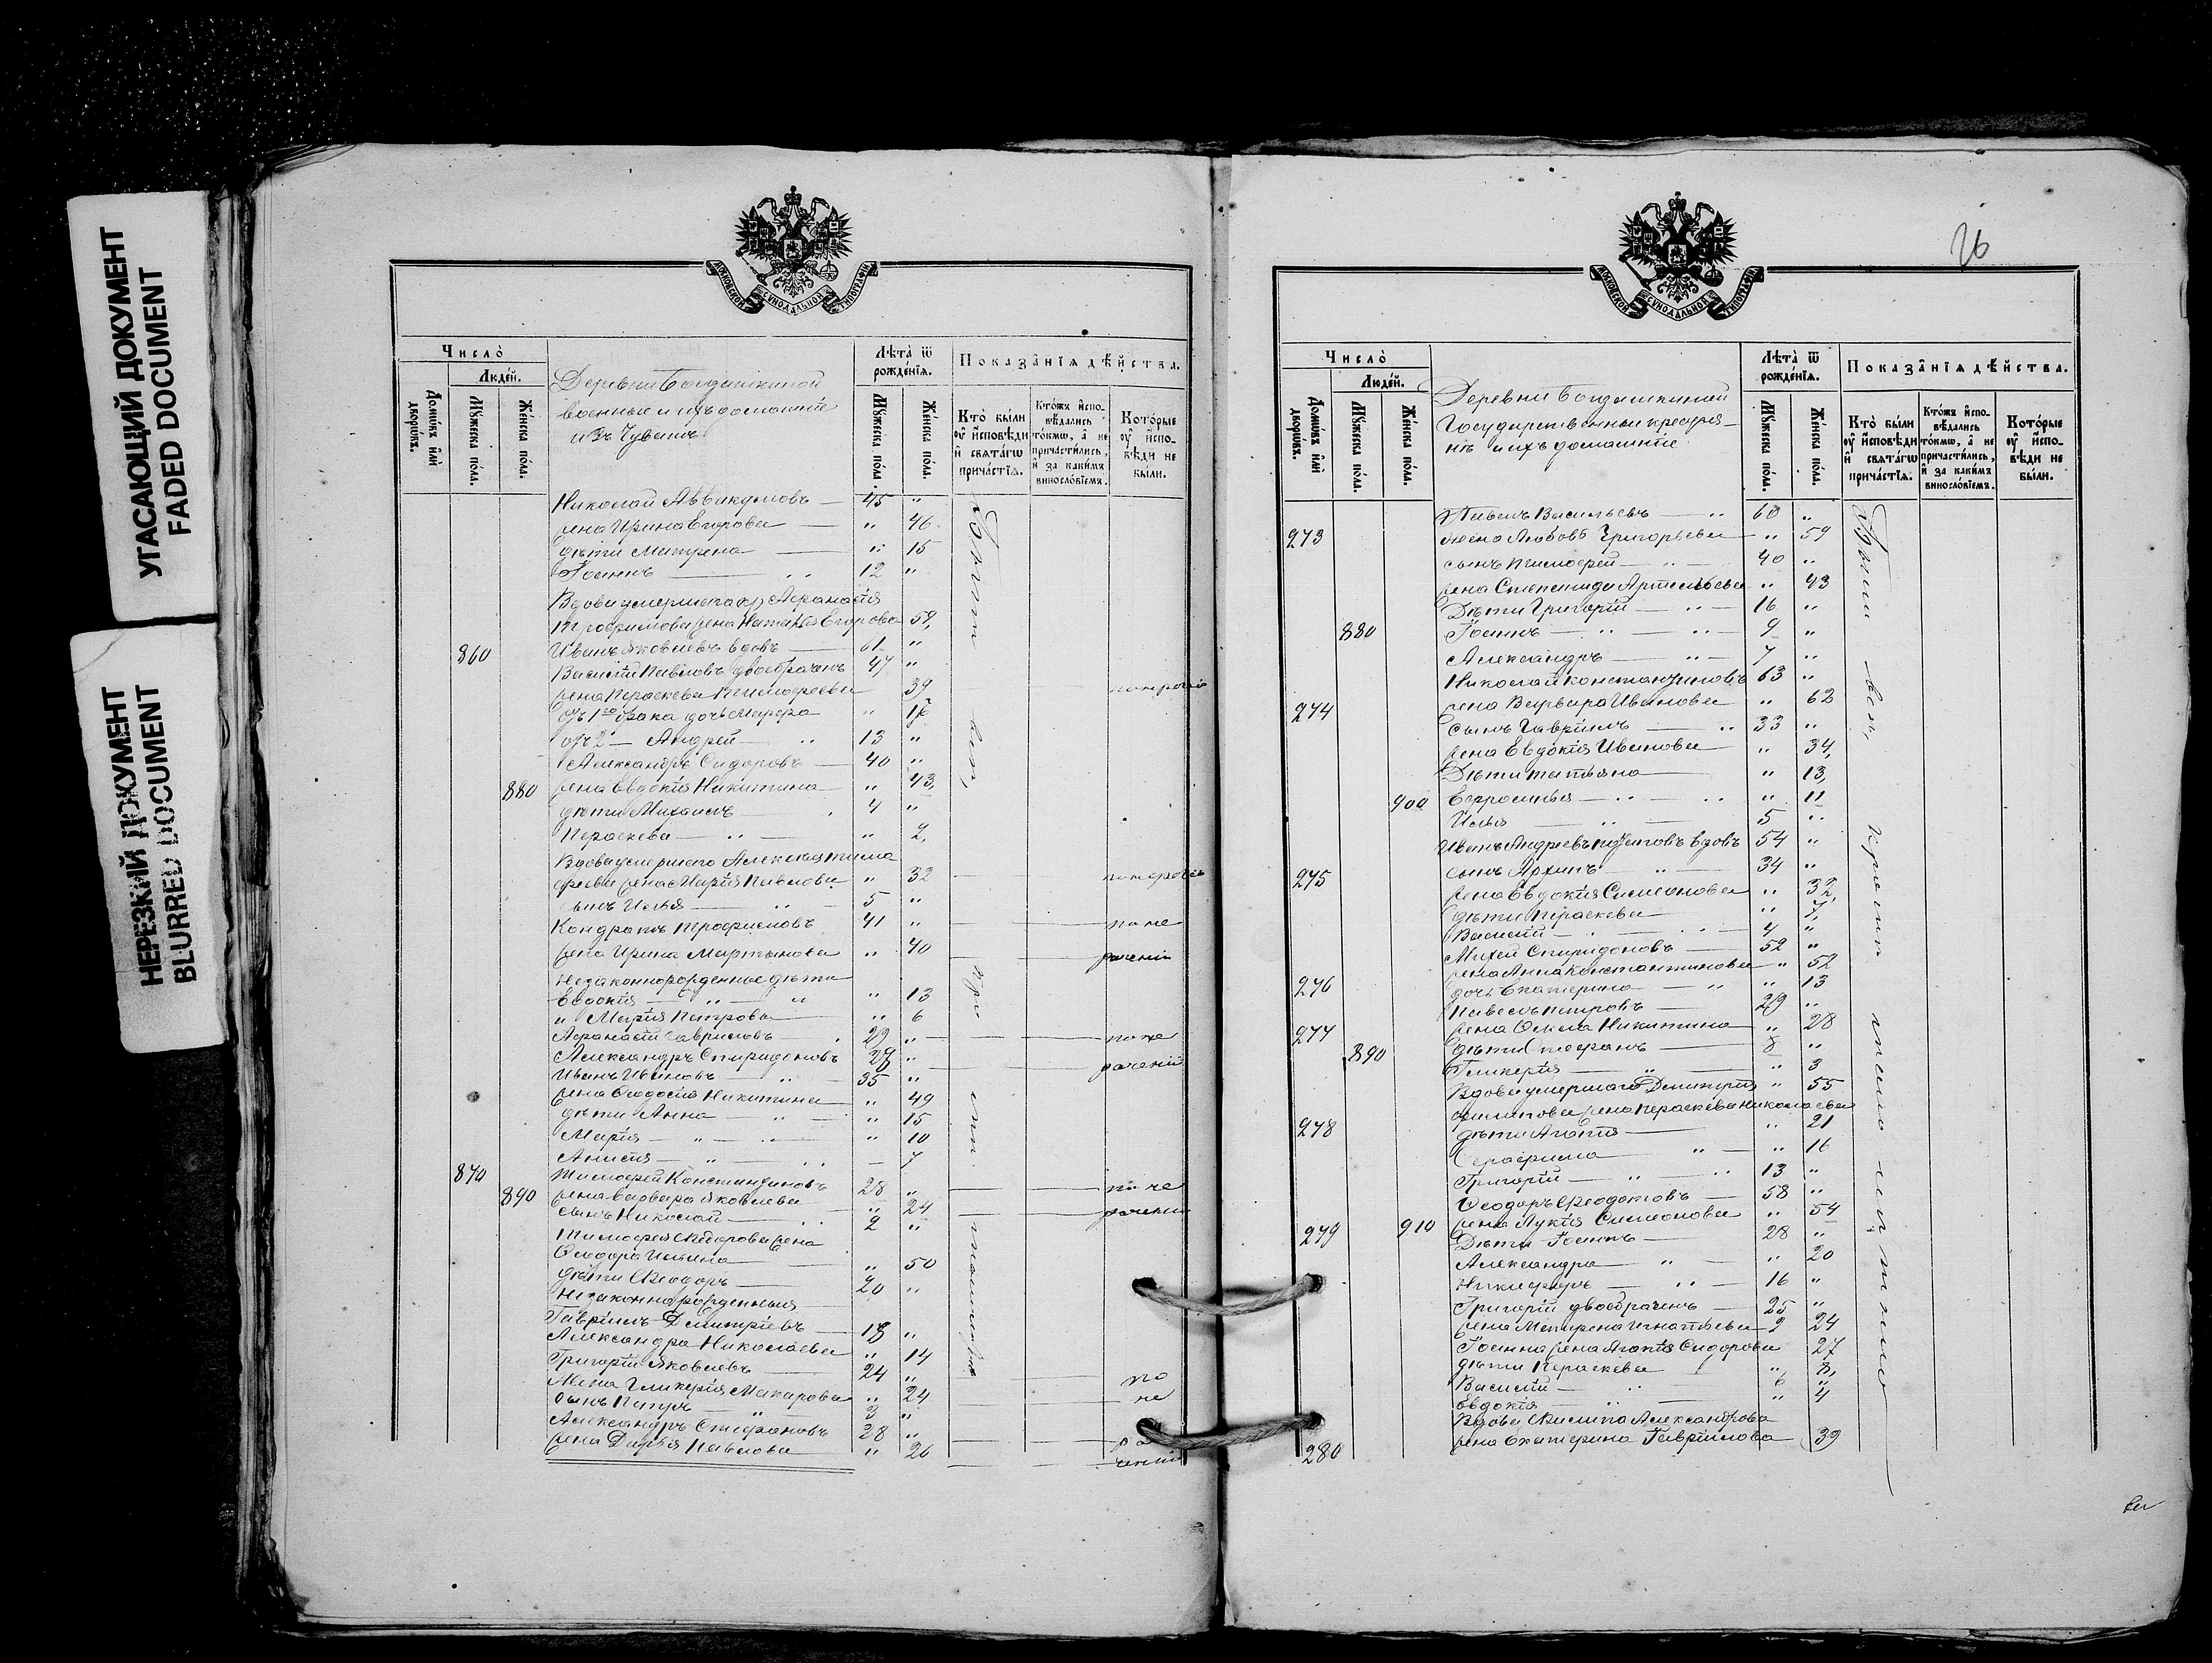 УГАСАЮЩИЙ ДОКУМЕНТ
FADED DOCUMENT
НЕРЕЗКИЙ ДОКУМЕНТ
BLURRED DOCUMENT
МОСКОВСКОЙ СѴНОДАЛЬНОЙ ТИПОГРАФІИ
Число̀
Люде́й.
Домѡ́въ и҆лѝ дворѡ́въ.
Мꙋ́жеска по́ла.
Же́нска по́ла.
Деревни Богдашкиной
военные и ихъ домашніе
изъ Чувашъ
Лѣта̀ ѿ рожде́нїѧ.
Мꙋ́жеска по́ла.
Же́нска по́ла.
Показа̑нїѧ дѣ́йства.
Кто̀ бы́ли ᲂу҆ и҆сповѣди и҆ свѧта́гѡ прича́стїѧ.
Кто́жъ и҆сповѣ́дались то́кмѡ, а҆ не причасти́лись, и҆ за каки́мъ винословїемъ.
Кото́рые ᲂу҆ и҆сповѣди не бы́ли.
Николай Аввакумовъ — 45 "
жена Ирина Егорова — " 46
дѣти Матрена — " 15
Іоаннъ — 12 "
Вдова умершаго Аѳанасія
Трофимова жена Наталья Егорова 59,
860 Иванъ Яковлевъ вдовъ — 61 "
Василій Павловъ двоебрачен 47 "
жена Параскева Тимофеева 39
отъ 1го брака дочь Марфа " 16
отъ 2 — Андрей " 13 "
Александръ Сидоровъ — 40 "
880 жена Евдокія Никитина — " 43,
дѣти Михаилъ — 4 "
Параскева — " — " 2,
Вдова умершаго Алексѣя Тимо
феева жена Марія Павлова " 32
сынъ Илья — " — 5 "
Кондратъ Трофимовъ 41 " по не
жена Ирина Мартынова " 40 раченію
Незаконнорожденные дѣти
Евдокія — " — " " 13
и Марія Петрова — " 6
Аѳанасій Гавриловъ — 29 " по не
Александръ Спиридоновъ 29 " раченію
Иванъ Ивановъ — " — 35 "
жена Ѳеодосія Никитина — " 49
дѣти Анна — " — " 15
Марія — " — " 10
Анисія — " — 7
870 Тимофей Константиновъ 28 " по не
890 жена Варвара Яковлева " 24 раченію
сынъ Николай — 2 "
Тимофея Ѳедорова жена
Ѳеодора Ильина — " 50
дѣти Ѳеодоръ — 20 "
Незаконнорожденныя
Гавріилъ Димитріевъ — 18 "
Александра Николаева " 14
Григорій Яковлевъ — 24 " по
Жена Гликерія Макарова " 24 не
сынъ Петръ — " 3 "
Александръ Стефановъ 28 " ра
жена Дарья Павлова " 26 ченію
26
МОСКОВСКОЙ СѴНОДАЛЬНОЙ ТИПОГРАФІИ
Число̀
Люде́й.
Домѡ́въ и҆лѝ дворѡ́въ.
Мꙋ́жеска по́ла.
Же́нска по́ла.
Деревни Богдашкиной
Государственные крестья-
не и ихъ домашніе
Лѣта̀ ѿ рожде́нїѧ.
Мꙋ́жеска по́ла.
Же́нска по́ла.
Показа̑нїѧ дѣ́йства.
Кто̀ бы́ли ᲂу҆ и҆сповѣди и҆ свѧта́гѡ прича́стїѧ.
Кто́жъ и҆сповѣ́дались то́кмѡ, а҆ не причасти́лись, и҆ за каки́мъ винословїемъ.
Кото́рые ᲂу҆ и҆сповѣди не бы́ли.
Павелъ Васильевъ — " 60 "
273 жена Любовь Григорьева — " 59
сынъ Тимофей — " 40 "
жена Степанида Артемьева " 43
Дѣти Григорій — " — 16 "
880 Іоаннъ — " — " — 9 "
Александръ — " — 7 "
Николай Константиновъ 63 "
274 жена Варвара Иванова " 62
сынъ Гавріилъ — " 33 "
жена Евдокія Иванова — " 34,
Дѣти Татьяна — " 13,
900 Евфросинья — " — " " 11
Илья — " — 5 "
Иванъ Андреевъ вдовъ 54 "
275 сынъ Архипъ — " — 34 "
жена Евдокія Симеонова " 32
дѣти Параскева — " 7,
Василій — " — 4 "
Михей Спиридоновъ — 52 "
жена Анна Константинова — " 52
276 дочь Екатерина — " " 13
Павелъ Петровъ — 29 "
277 жена Никитина — " 28
890 дѣти Стефанъ — 8 "
Гликерія — " — " 3
Вдова умершаго Димитрія " 55
Филипова жена Параскева Николаева
278 дѣти Агафія — " 21
Серафима " — " 16
Григорій — " — " 13 "
Ѳеодоръ Ѳеодотовъ — 58 "
279 910 жена Лукія Симеонова " 54
Дѣти Іоаннъ — 28 "
Александра — " — " 20
Никифоръ — " — 16 "
Григорій двоебраченъ — 25 "
жена Матрена Игнатьева 24
Іоанна жена Агафія Сидорова 27
дѣти Параскева — " 8,
Василій — " — 6 "
Евдокія — " — " 4
Вдова Филипа Александрова
280 жена Екатерина Гаврилова 39